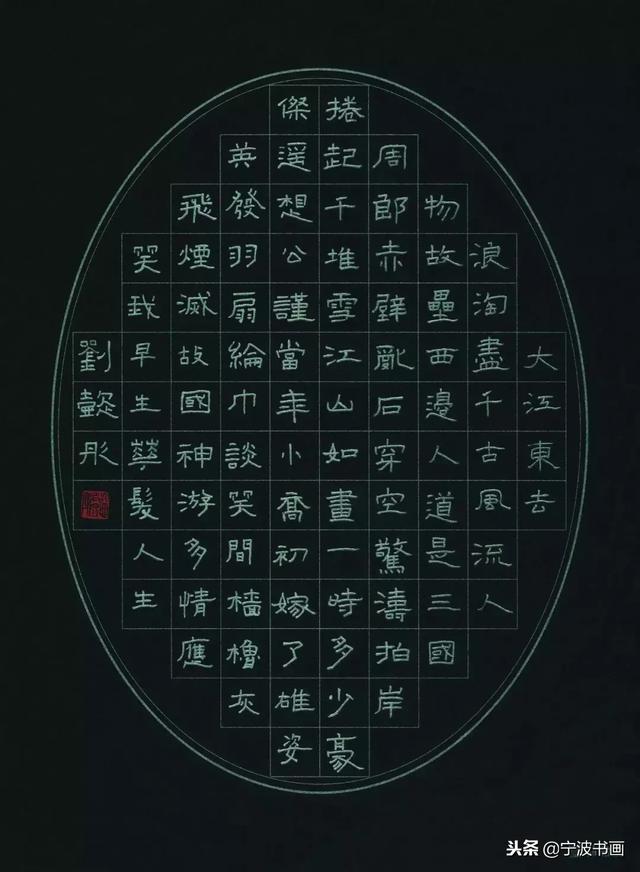 大江東去
浪淘盡千古風流人
物故壘西邊人道是三國
周郎赤壁亂石穿空驚濤拍岸
捲起千堆雪江山如畫一時多少豪
傑遥想公謹當年小喬初嫁了雄姿
英發羽扇綸巾談笑間檣櫓灰
飛煙滅故國神游多情應
笑我早生華髮人生
劉懿彤
头条@宁波书画